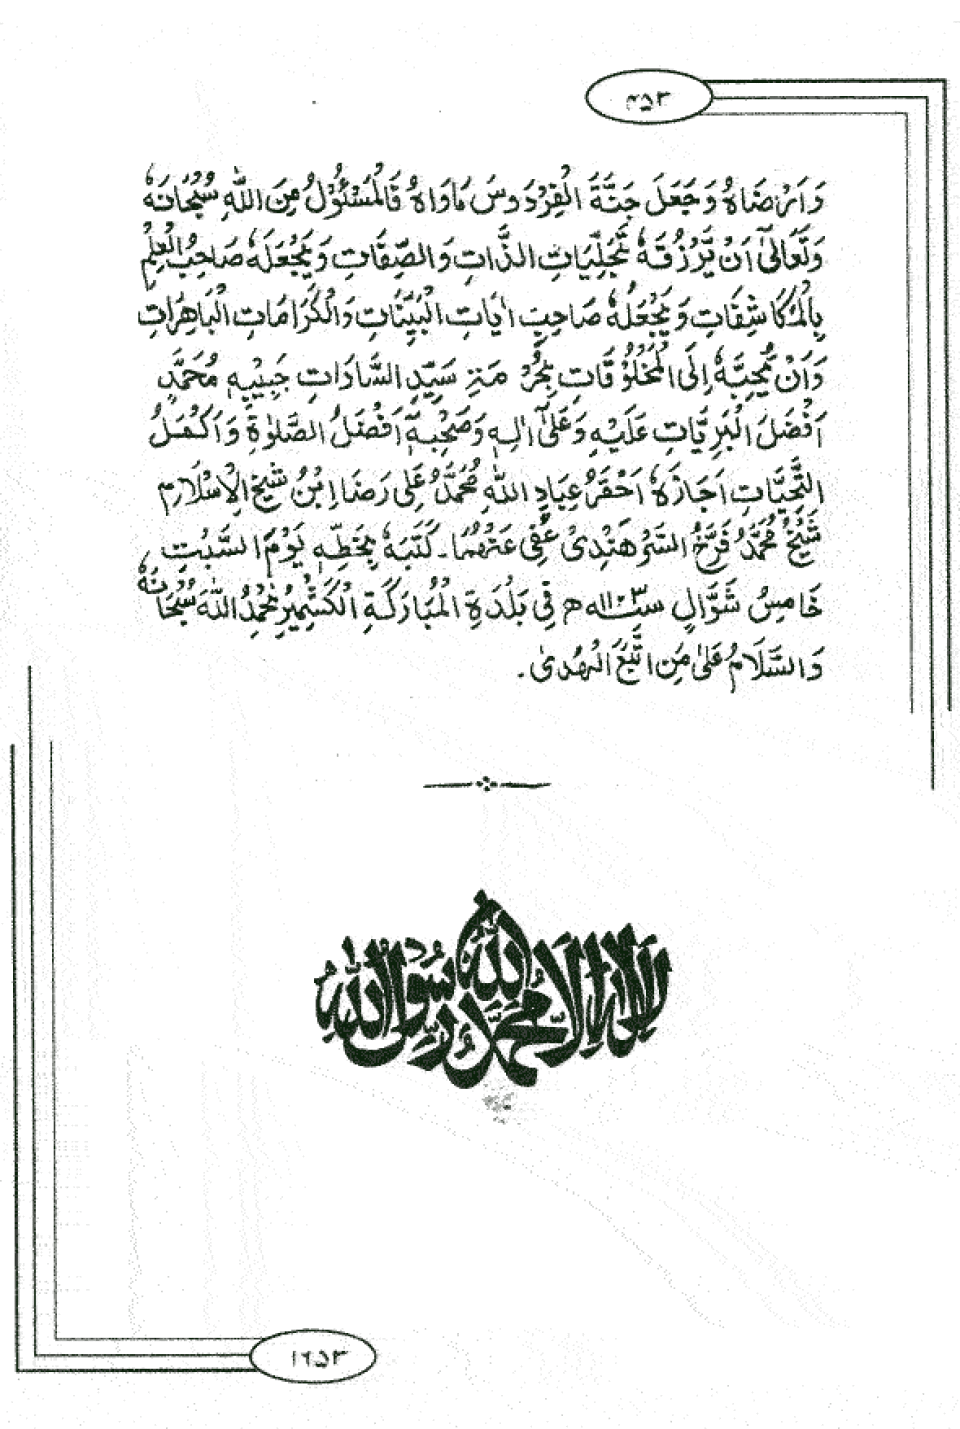 ۴۵۳
وَاَرْضَاهُ وَجَعَلَ جَنَّةَ الْفِرْدَوسَ مَاوَاهُ فَالْمَسْئُوْلُ مِنَ اللّٰهِ سُبْحَانَهٗ
وَتَعَالٰی اَنْ يَّرْزُقَهٗ تَجَلِّيَاتِ الذَّاتِ وَالصِّفَاتِ وَيَجْعَلَهٗ صَاحِبُ الْعِلْمِ
بِالْمُكَاشِفَاتِ وَيَجْعَلُهٗ صَاحِبِ اٰيَاتِ الْبَيِّنَاتِ وَالْكَرَامَاتِ الْبَاهِرَاتِ
وَاَنْ يُّحِبَّهٗ اِلَى الْمَخْلُوْقَاتِ بِحُرْمَةِ سَيِّدِ السَّادَاتِ حَبِيْبِهٖ مُحَمَّدٍ
اَفْضَلَ الْبَرِيَّاتِ عَلَيْهِ وَعَلٰى اٰلِهٖ وَصَحْبِهٖ اَفْضَلُ الصَّلٰوةِ وَاَكْمَلُ
التَّحِيَّاتِ اَجَازَهٗ اَحْقَرُ عِبَادِ اللّٰهِ مُحَمَّدُ عَلِى رَضَا اِبْنُ شَيْخِ الْاِسْلَامِ
شَيْخُ مُحَمَّدُ فَرَّخُ السَّرْهَنْدِىْ عُفِىَ عَنْهُمَا۔ كَتَبَهٗ بِخَطِّهٖ يَوْمَ السَّبْتِ
خَامِسُ شَوَّالٍ سنــ۱۱۰۳ــه فِى بَلْدَةِ الْمُبَارَكَةِ الْكَشْمِيْرِ بِحَمْدُ اللّٰهَ سُبْحَانَهٗ
وَالسَّلَامُ عَلٰى مَنِ اتَّبَعَ الْهُدٰى۔
لا اله الا الله محمد رسول الله
۱۶۵۳